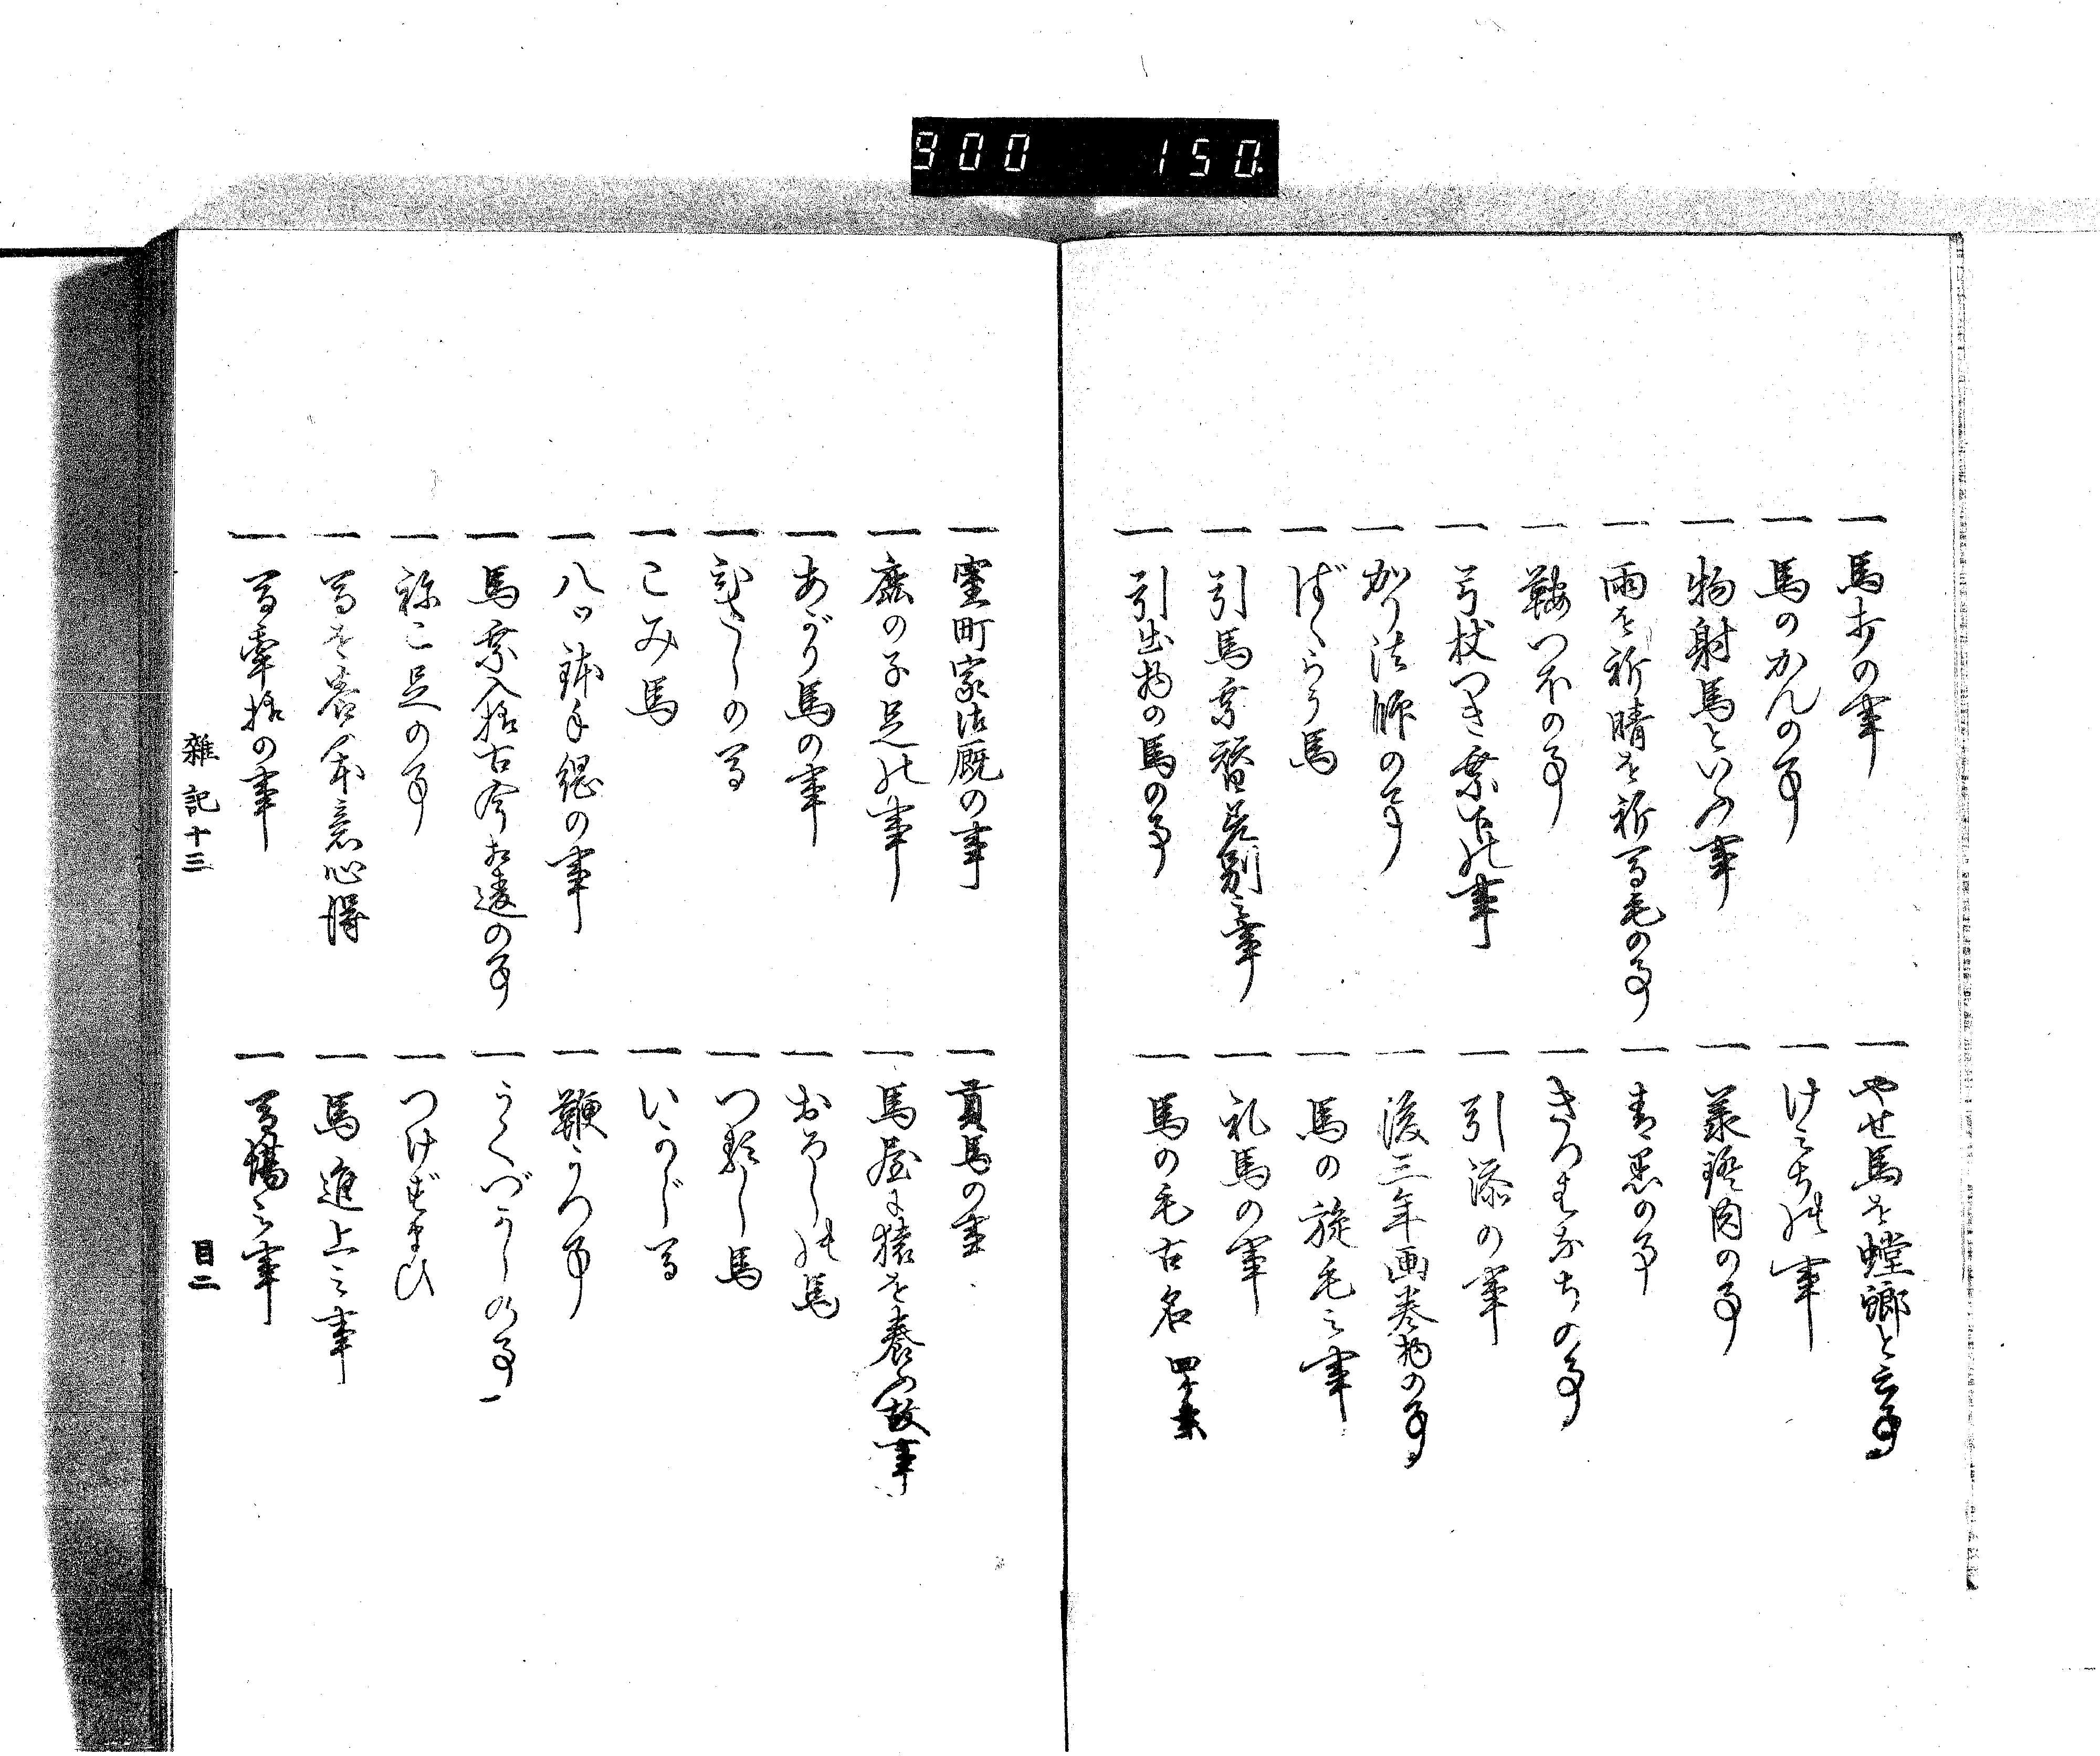 900 150.
一 馬歩の事
一 やせ馬を蟷螂と云事
一 馬のかんの事
一 けみち の事
一 物射馬といふ事
一 肉の事
一 雨を祈晴を祈馬毛の事
一 青黒の事
一 鞍つぼの事
一 の事
一 弓杖つき乗下の事
一 引添の事
一 かり法師の事
一 後三年画巻物の事
一 ばゝらう馬
一 馬の旋毛之事
一 引馬乗替差別之事
一 礼馬の事
一 引出物の馬の事
一 馬の毛古名 四十
一 室町家御厩の事
一 貢馬の事
一 鹿の子足の事
一 馬屋に猿を養ふ故事
一 あがり馬の事
一 おろしの馬
一 むさしの馬
一 つぶし馬
一 こみ馬
一 いのじ馬
一 八ツ鉢手綱の事
一 鞭うつ事
一 馬乗入拾古今相違の事
一 うくづかしの事
一 ねこ足の事
一 つけずまひ
一 馬を養本意心得
一 馬進上之事
一 馬牽拾の事
一 馬場之事
雑記十三 目二